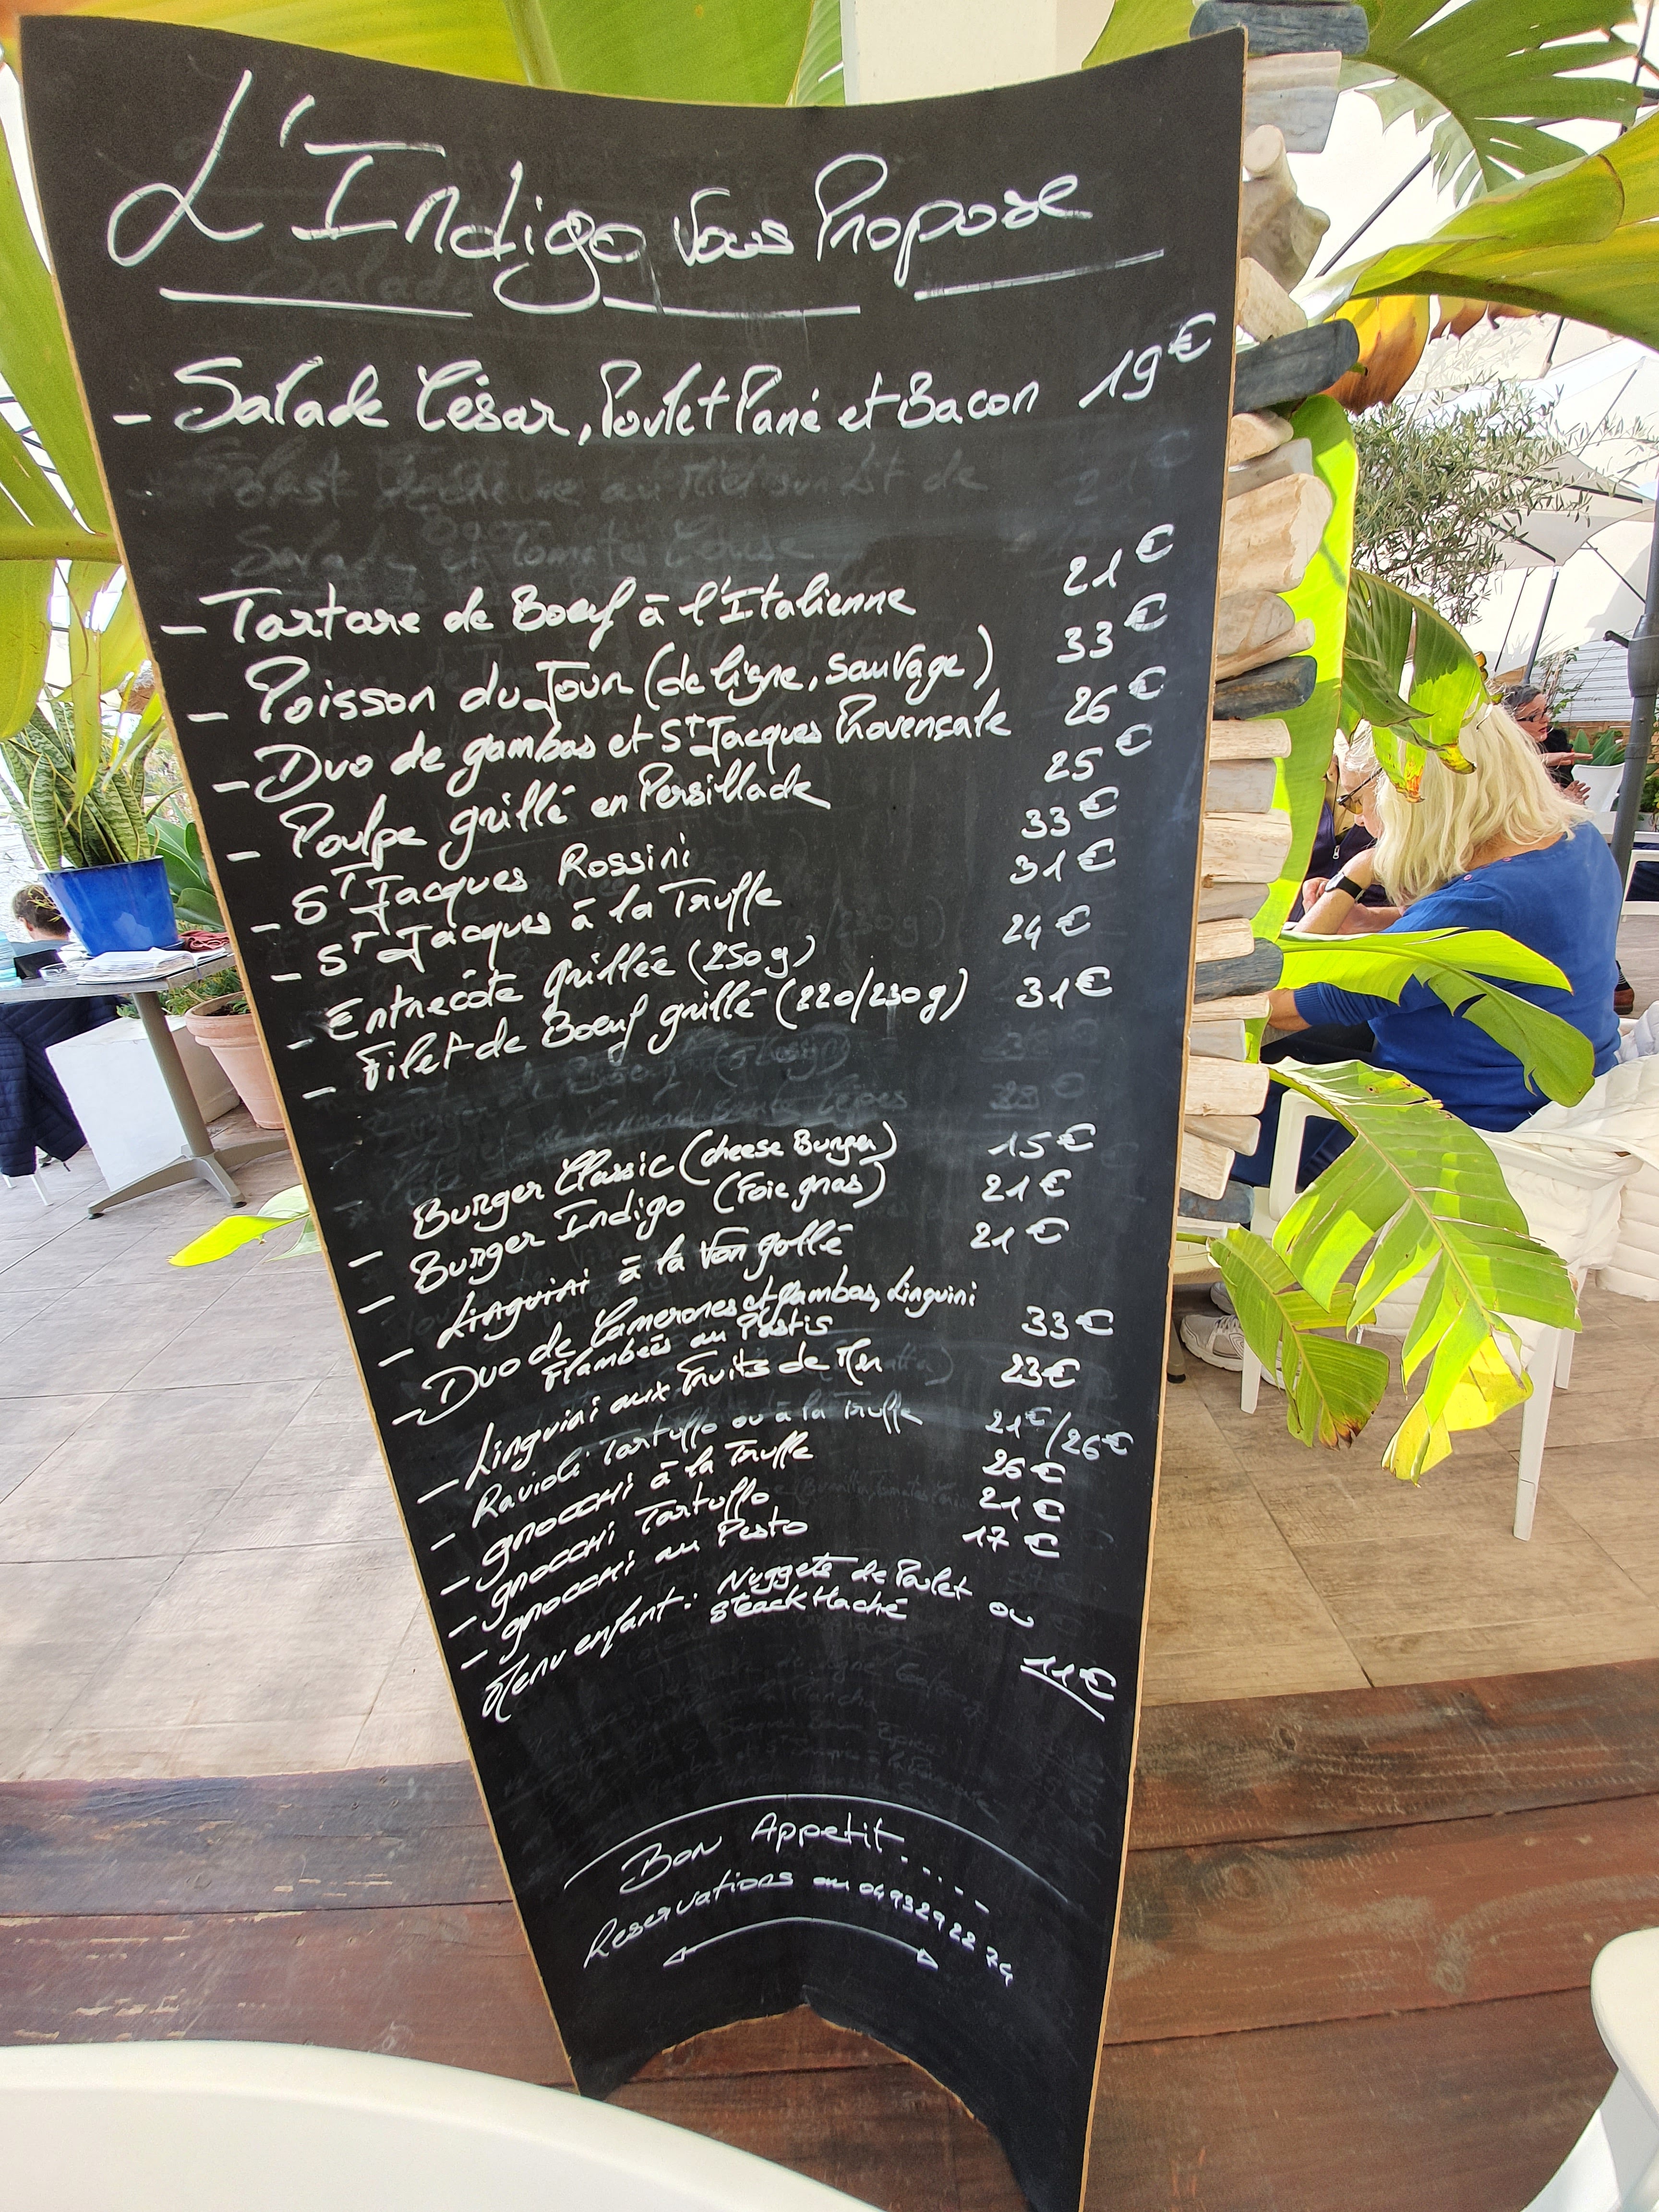 L'Indigo Vous Propose
- Salade César, Poulet Pané et Bacon 19€
- Tartare de Boeuf à l'Italienne 21€
- Poisson du Jour (de ligne, sauvage) 33€
- Duo de gambas et St Jacques Provençale 26€
- Poulpe grillé en Persillade 25€
- St Jacques Rossini 33€
- St Jacques à la Truffe 31€
- Entrecôte grillée (250g) 24€
- Filet de Boeuf grillé (220/230g) 31€
- Burger Classic (cheese Burger) 15€
- Burger Indigo (Foie gras) 21€
- Linguini à la Vongollé 21€
- Duo de Camerones et Gambas, Linguini
Flambées au Pastis 33€
- Linguini aux Fruits de Mer 23€
- Ravioli Tartuffo ou à la Truffe 21€/26€
- gnocchi à la Truffe 26€
- gnocchi Tartuffo 21€
- gnocchi au Pesto 17€
Menu enfant: Nuggets de Poulet ou
Steack Haché
11€
Bon Appetit.....
Reservations au 0493292274